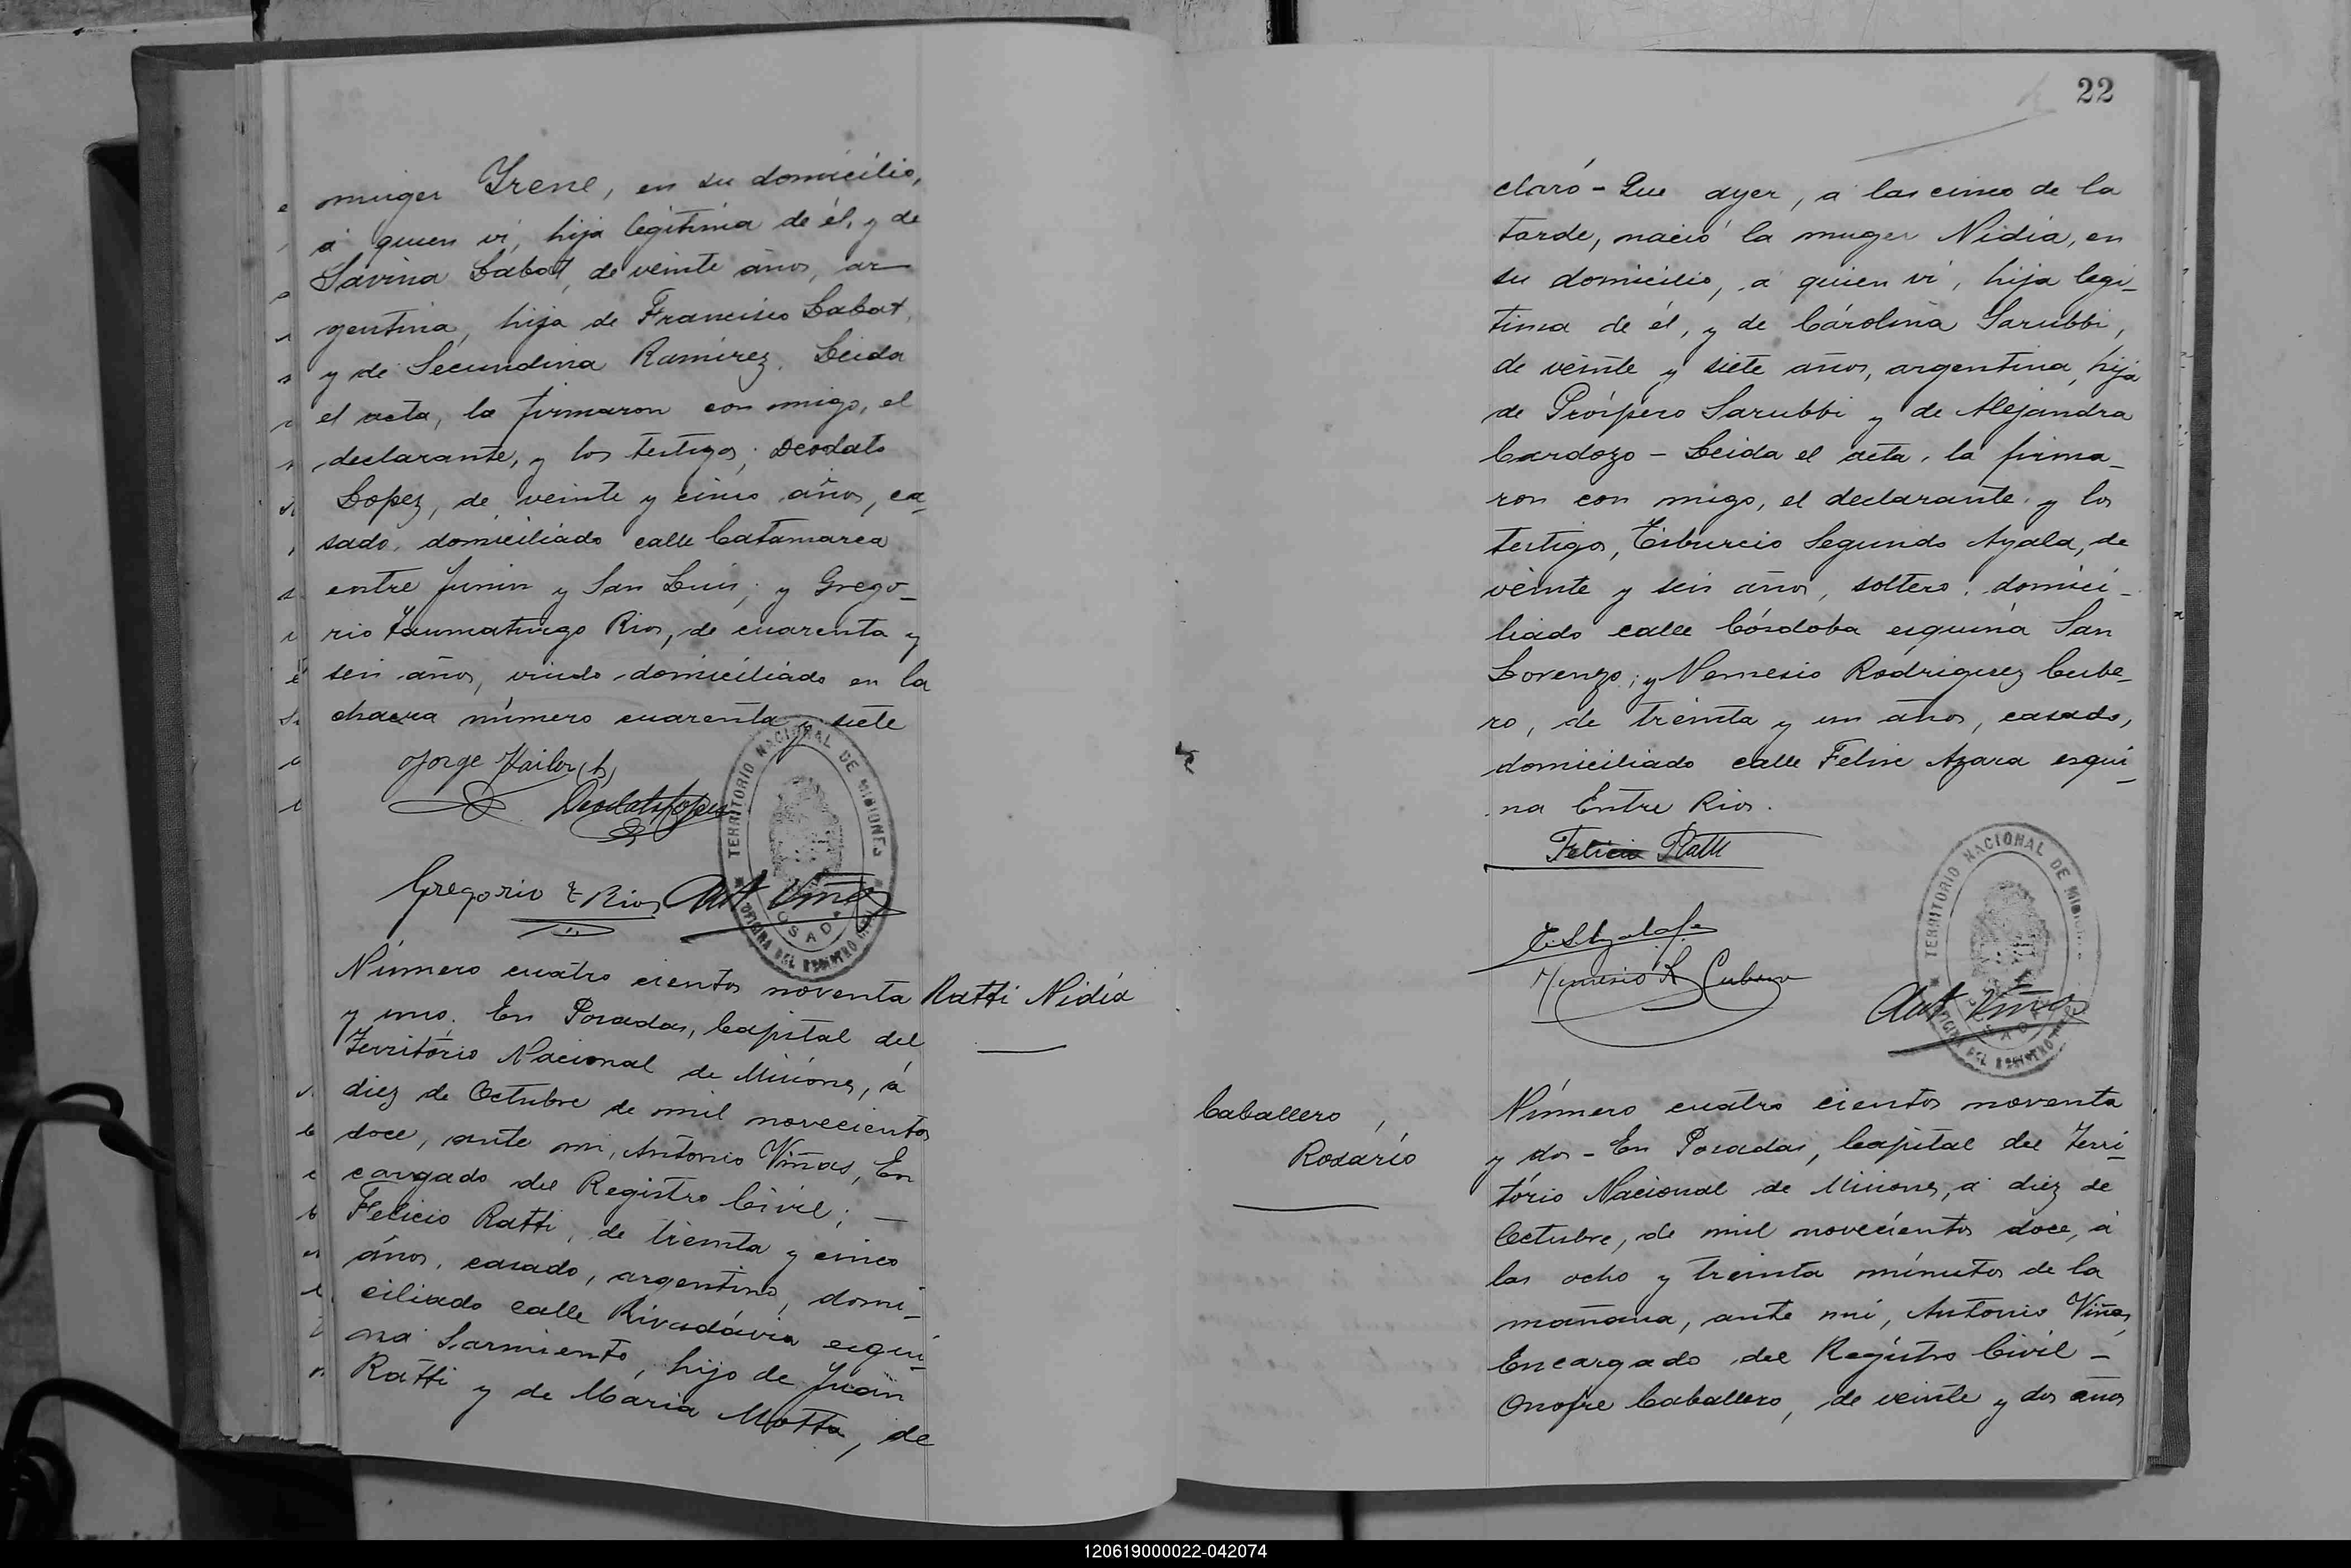 muger Yrene, en su domicilio,
á quien vi, hija legitima de él, y de
Savina Labat, de veinte años, ar
gentina, hija de Francisco Labat,
y de Secundina Ramirez. Leida
el acta, la firmaron con migo, el
declarante, y los testigos; Deodato
Lopez, de veinte y cinco años, ca-
sado, domiciliado calle Catamarca
entre Junin y San Luis; y Grego-
rio Taumaturgo Rios, de cuarenta y
seis años, viudo domiciliado en la
chacra número cuarenta y siete
Jorge (h)
Deodato Lopez
Gregorio T Rios Ant Viñas
TERRITORIO NACIONAL DE MISIONES
OFICINA DEL REGISTRO
POSADAS
Número cuatro cientos noventa
y uno. En Posadas, Capital del
Território Nacional de Misiones, á
diez de Octubre de mil novecientos
doce, ante mi, Antonio Viñas, En
cargado del Registro Civil; —
Felicio Ratti, de treinta y cinco
años, casado, argentino, domi-
ciliado calle Rivadávia esqui-
na Sarmiento, hijo de Juan
Ratti y de Maria Motta, de
Ratti Nidia
22
claró - Que ayer, á las cinco de la
tarde, nació la muger Nidia, en
su domicilio, á quien vi, hija legi-
tima de él, y de Cárolina Sarubbi,
de veinte y siete años, argentina, hija
de Próspero Sarubbi y de Alejandra
Cardozo - Leida el acta, la firma-
ron con migo, el declarante, y los
testigos, Tiburcio Segundo Ayala, de
veinte y seis años, soltero, domici-
liado calle Córdoba esquina San
Lorenzo; y Nemesio Rodriguez Cube-
ro, de treinta y un años, casado,
domiciliado calle Felix Azara esqui-
na Entre Rios.
Felicio Ratti
Nemesio R Cubero
Ant Viñas
TERRITORIO NACIONAL DE MISIONES
OFICINA DEL REGISTRO
Caballero,
Rosário
Número cuatro cientos noventa
y dos - En Posadas, Capital del Terri-
tório Nacional de Misiones, á diez de
Octubre, de mil novecientos doce, á
las ocho y treinta minutos de la
mañana, ante mi, Antonio Viñas,
Encargado del Registro Civil -
Onofre Caballero, de veinte y dos años
120619000022-042074